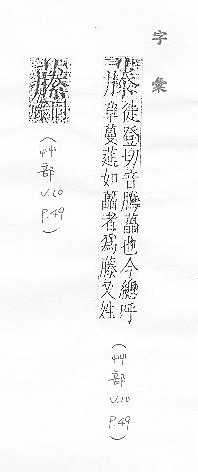 字彙
藤 徒登切音騰藟也今總呼
草蔓莚如藟者為藤又姓
(艸部 V.10 P.49)
藤
(艸部 V.10 P.49)